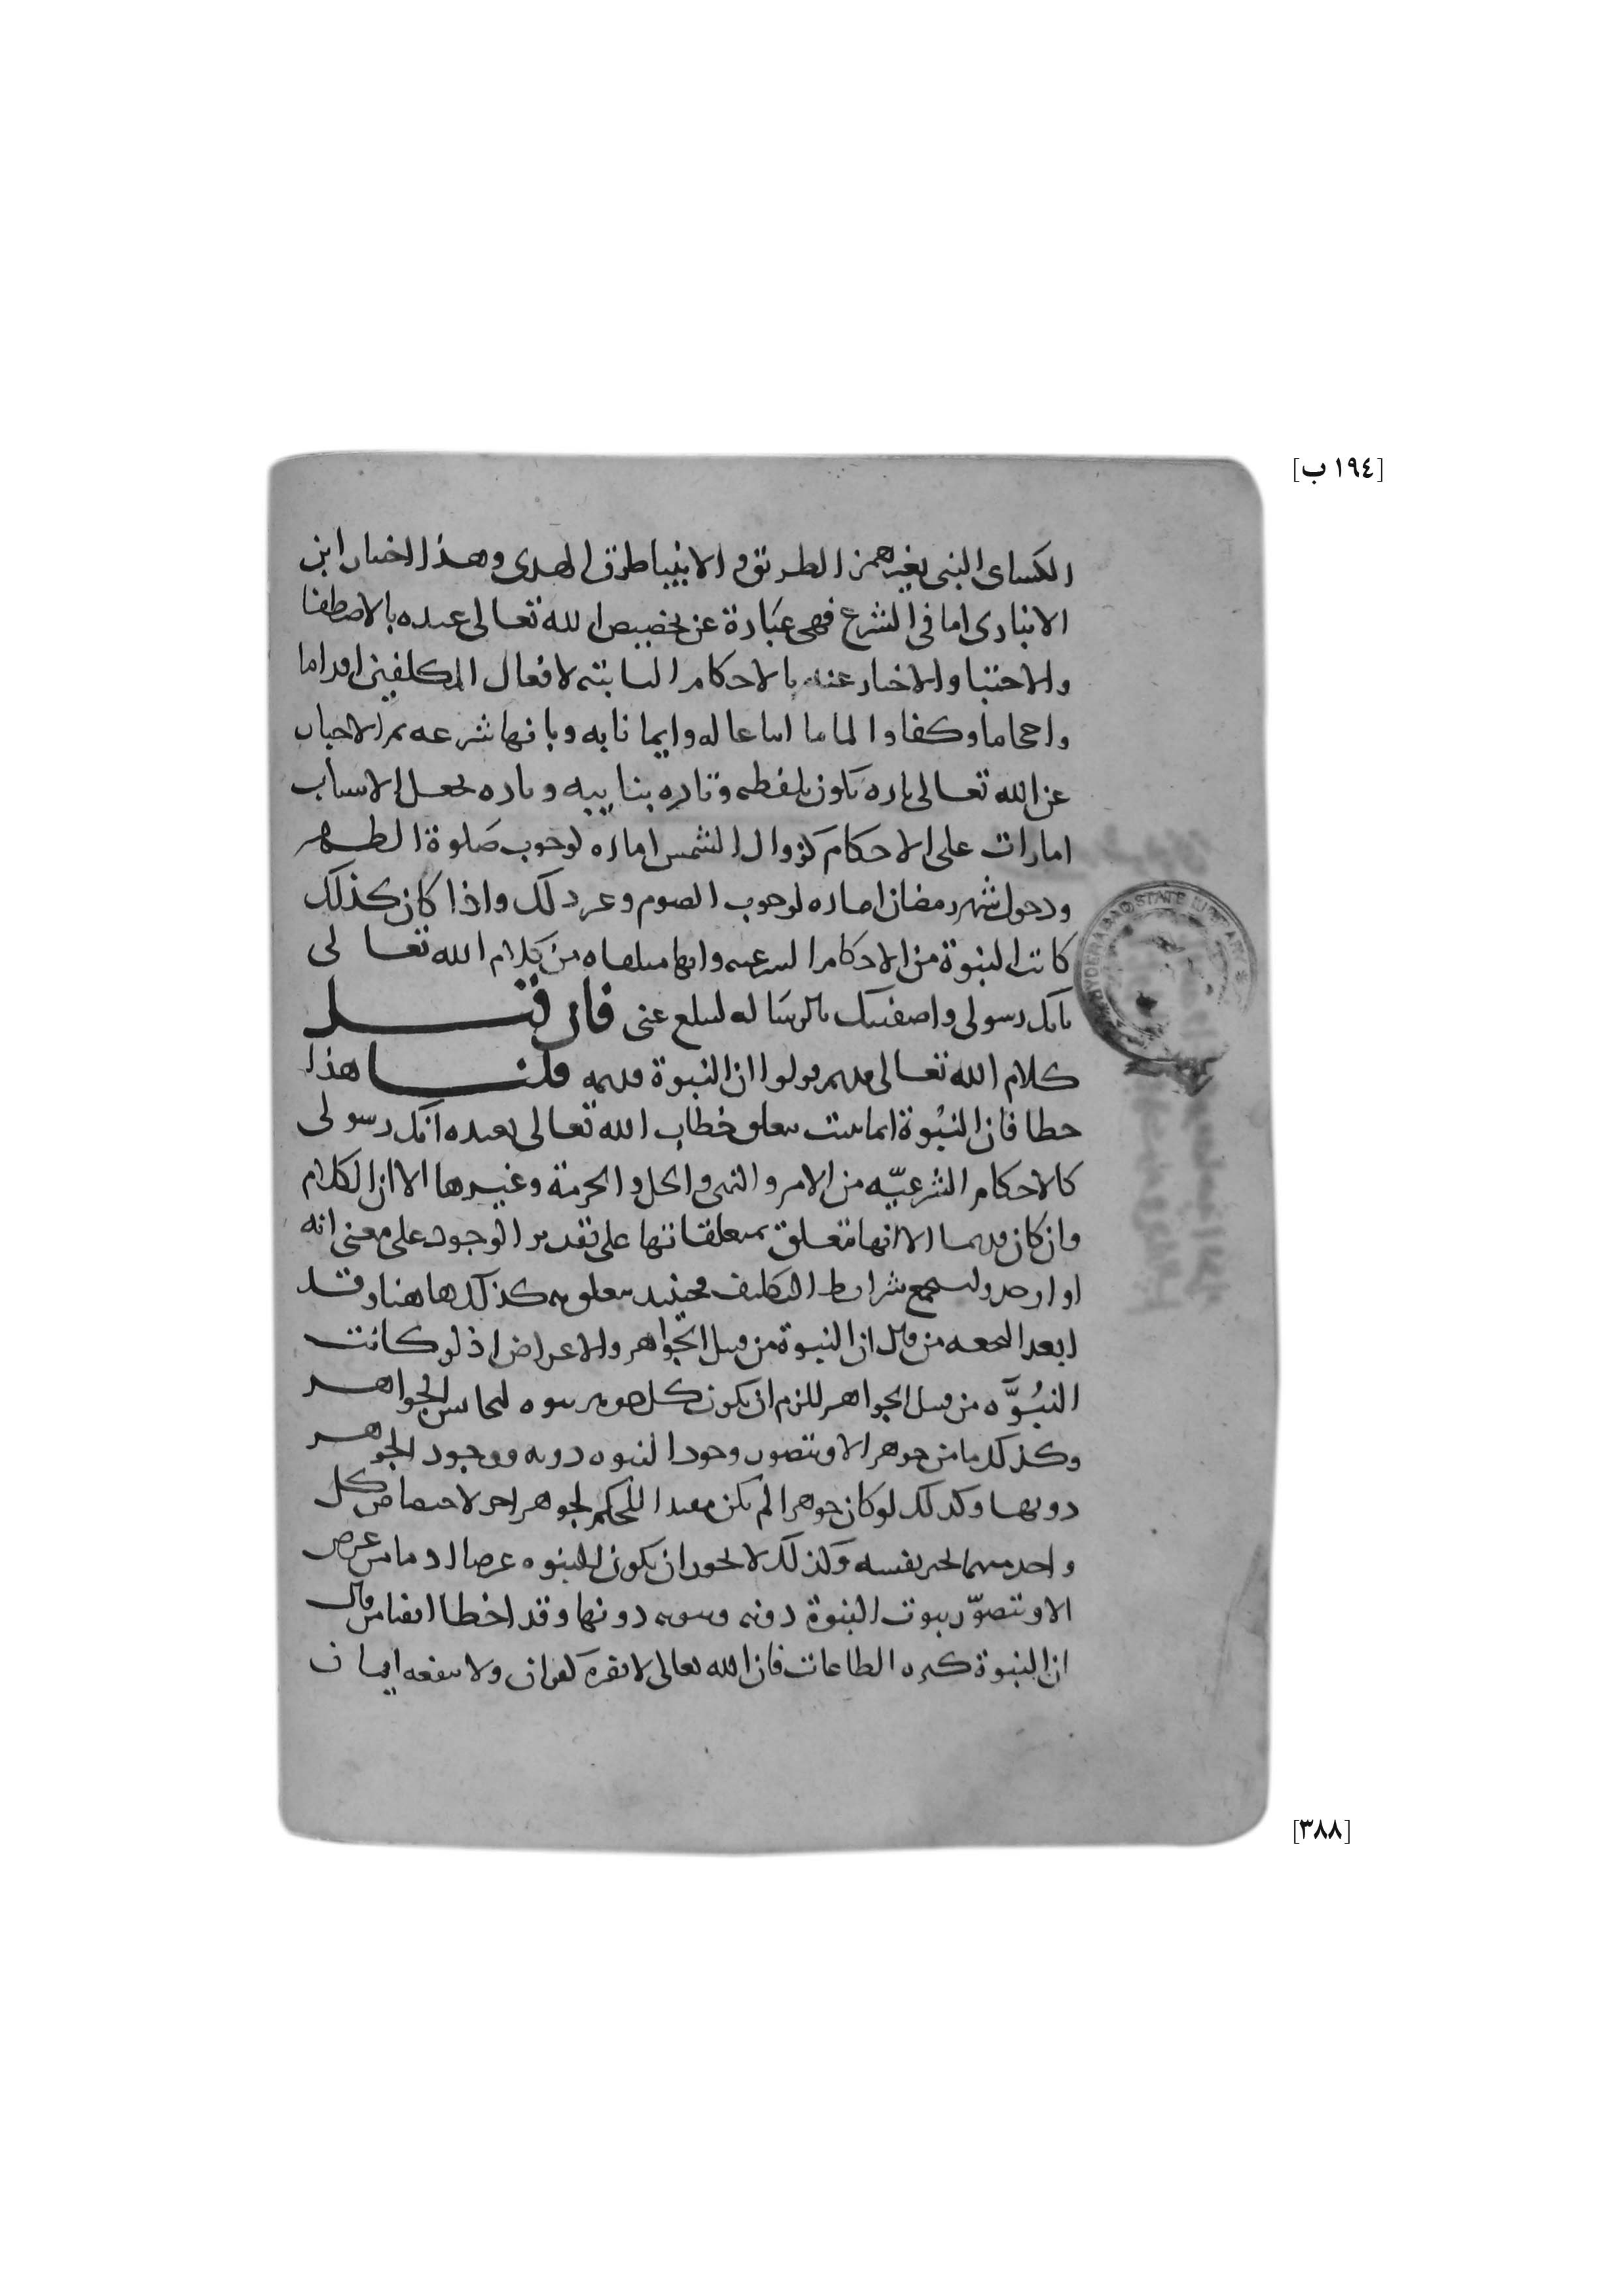 [١٩٤ ب]
الكساى النبى بغير همز الطريق والانبيا طرق الهدى وهذا اختيار ابن
الانبارى اما فى الشرع فهى عبارة عن تخصيص الله تعالى عبده بالاصطفا
والاجتبا والاخبار عنه بالاحكام الثابتة لافعال المكلفين اقداما
واحجاما وكفا والماما اتباعا له وايمانا به وبانها شرعه ثم الاخبار
عن الله تعالى تارة تكون بلفظه وتارة بنا بيه وتارة بجعل الاسباب
امارات على الاحكام كزوال الشمس امارة لوجوب صلوة الظهر
ودخول شهر رمضان امارة لوجوب الصوم وغير ذلك واذا كان كذلك
كانت النبوة من الاحكام الشرعية وانها متلقاة من كلام الله تعالى
بانك رسولى واصفيتك بالرسالة لتبلغ عنى فان قيل
كلام الله تعالى قديم فقولوا ان النبوة قديمة قلنا هذا
خطا فان النبوة انما تثبت بتعلق خطاب الله تعالى بعبده انك رسولى
كالاحكام الشرعيّة من الامر والنهى والحل والحرمة وغيرها الا ان الكلام
وان كان قديما الا انها تتعلق بمتعلقاتها على تقدير الوجود على معنى انه
اذا وجد واستجمع شرايط التكليف فحينيذ يتعلق به كذلك هاهنا وقد
ابعد النجعة من قال ان النبوة من قبيل الجواهر والاعراض اذ لو كانت
النبُوَّة من قبيل الجواهر للزم ان يكون كل جوهر نبوة لتجانس الجواهر
وكذلك ما من جوهر الا ويتصور وجود النبوة دونه ووجود الجوهر
دونها وكذلك لو كان جوهرا لم يكن مفيدا للحكم لجوهر اخر لاختصاص كل
واحد منهما بحيز بنفسه وكذلك لا يجوز ان يكون النبوة عرضا اذ ما من عرض
الا ويتصوّر ثبوت النبوة دونه وثبوته دونها وقد اخطا ايضا من قال
ان النبوة كثرة الطاعات فان الله تعالى لا يضره كفران ولا ينفعه ايمان
HYDERABAD STATE LIBRARY
[٣٨٨]